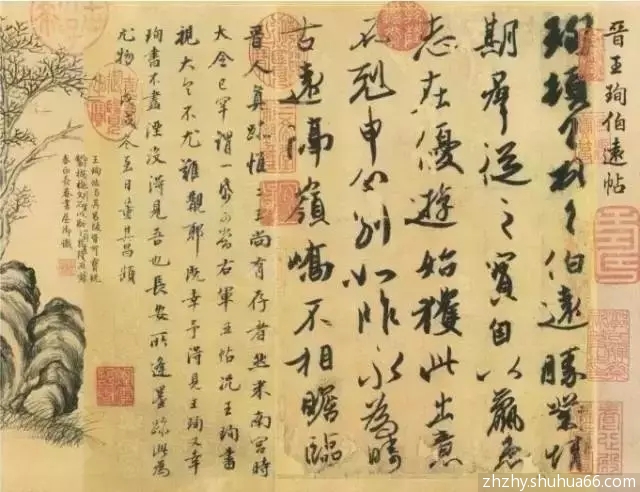 晉王珣伯遠帖
珣頓首頓首伯遠勝業情
期群從之寶自以羸患
志在優遊始獲此出意
不剋申分別如昨永為疇
古遠隔嶺嶠不相瞻臨
晉人真跡惟二王尚有存者然米南宮時
大令已罕謂一帋可當右軍五帖況王珣書
視大令不尤難覯耶既幸予得見王珣又幸
珣書不盡湮沒得見吾也長安所逢墨跡此為
尤物戊戌冬至日董其昌題
zhzhy.shuhua66.com